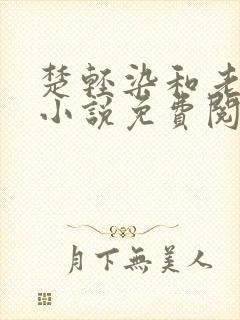 楚轻染和老
小说免費閱
月下無美人